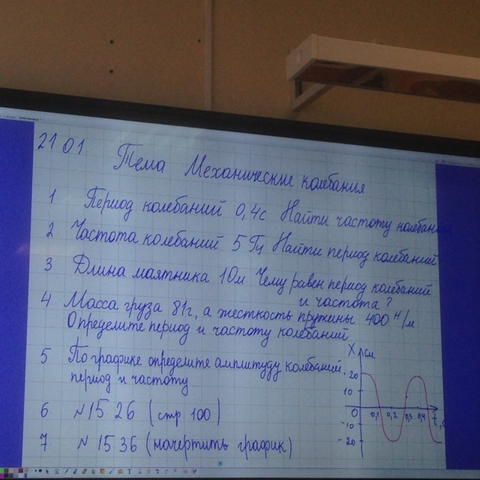 21 01
Тема Механические колебания
1 Период колебаний 0,4с Найти частоту колебан
2 Частота колебаний 5 Гц Найти период колебаний
3 Длина маятника 10м Чему равен период колебаний
и частота?
4 Масса груза 81г, а жесткость пружины 400 Н/м
Определите период и частоту колебаний
5 По графике определите амплитуду колебаний
период и частоту
6 N 15 26 (стр 100)
7 N 15 36 (начертить график)
X, см
20
10
0
-10
-20
0,1 0,2 0,3 0,4 t, с